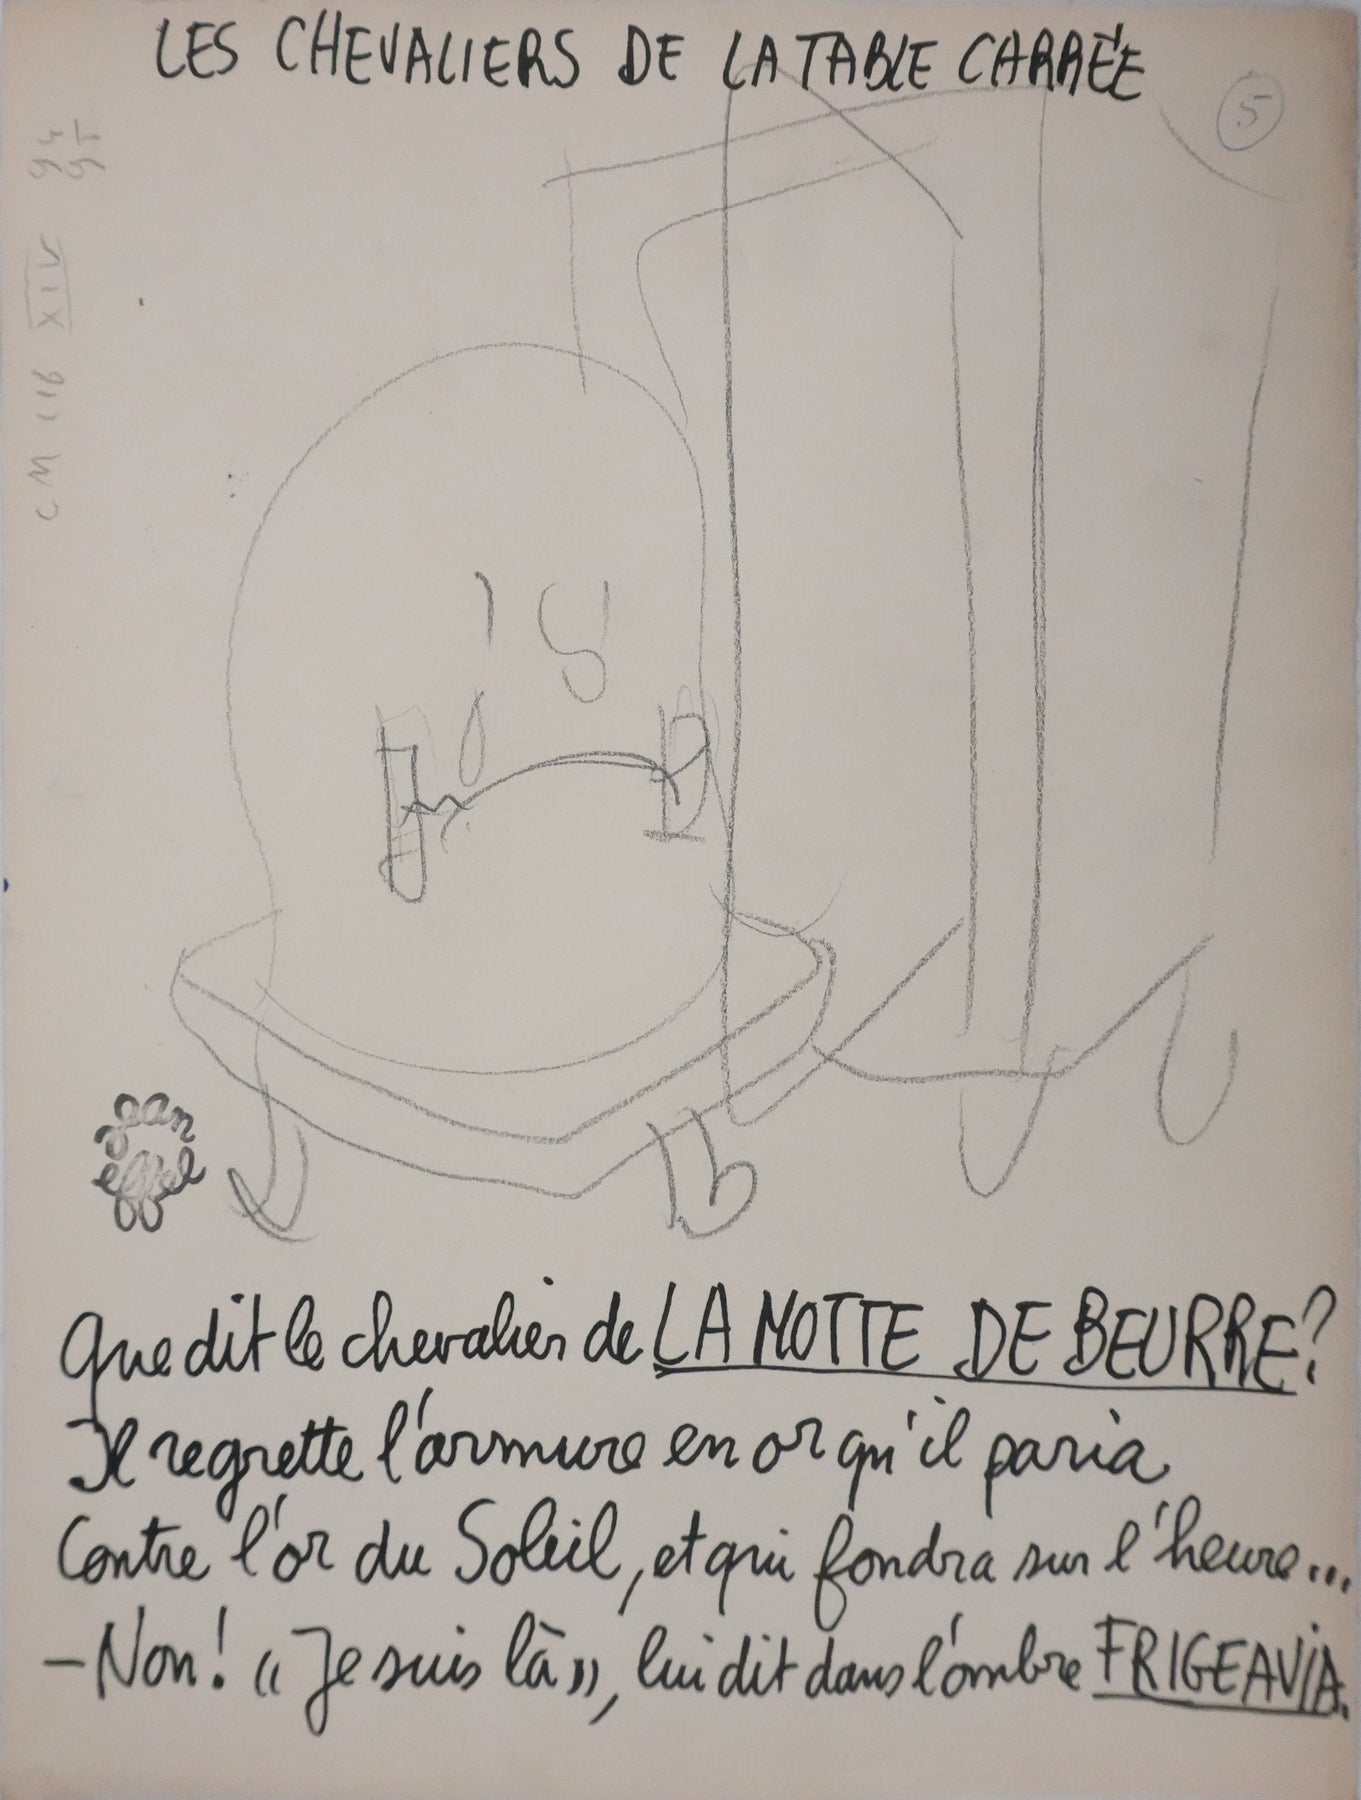 LES CHEVALIERS DE LA TABLE CARRÉE
5
94
91
CM 116 XIV
jean
effel
Que dit le chevalier de LA MOTTE DE BEURRE?
Il regrette l'armure en or qu'il paria
Contre l'or du Soleil, et qui fondra sur l'heure...
– Non! « Je suis là », lui dit dans l'ombre FRIGEAVIA.